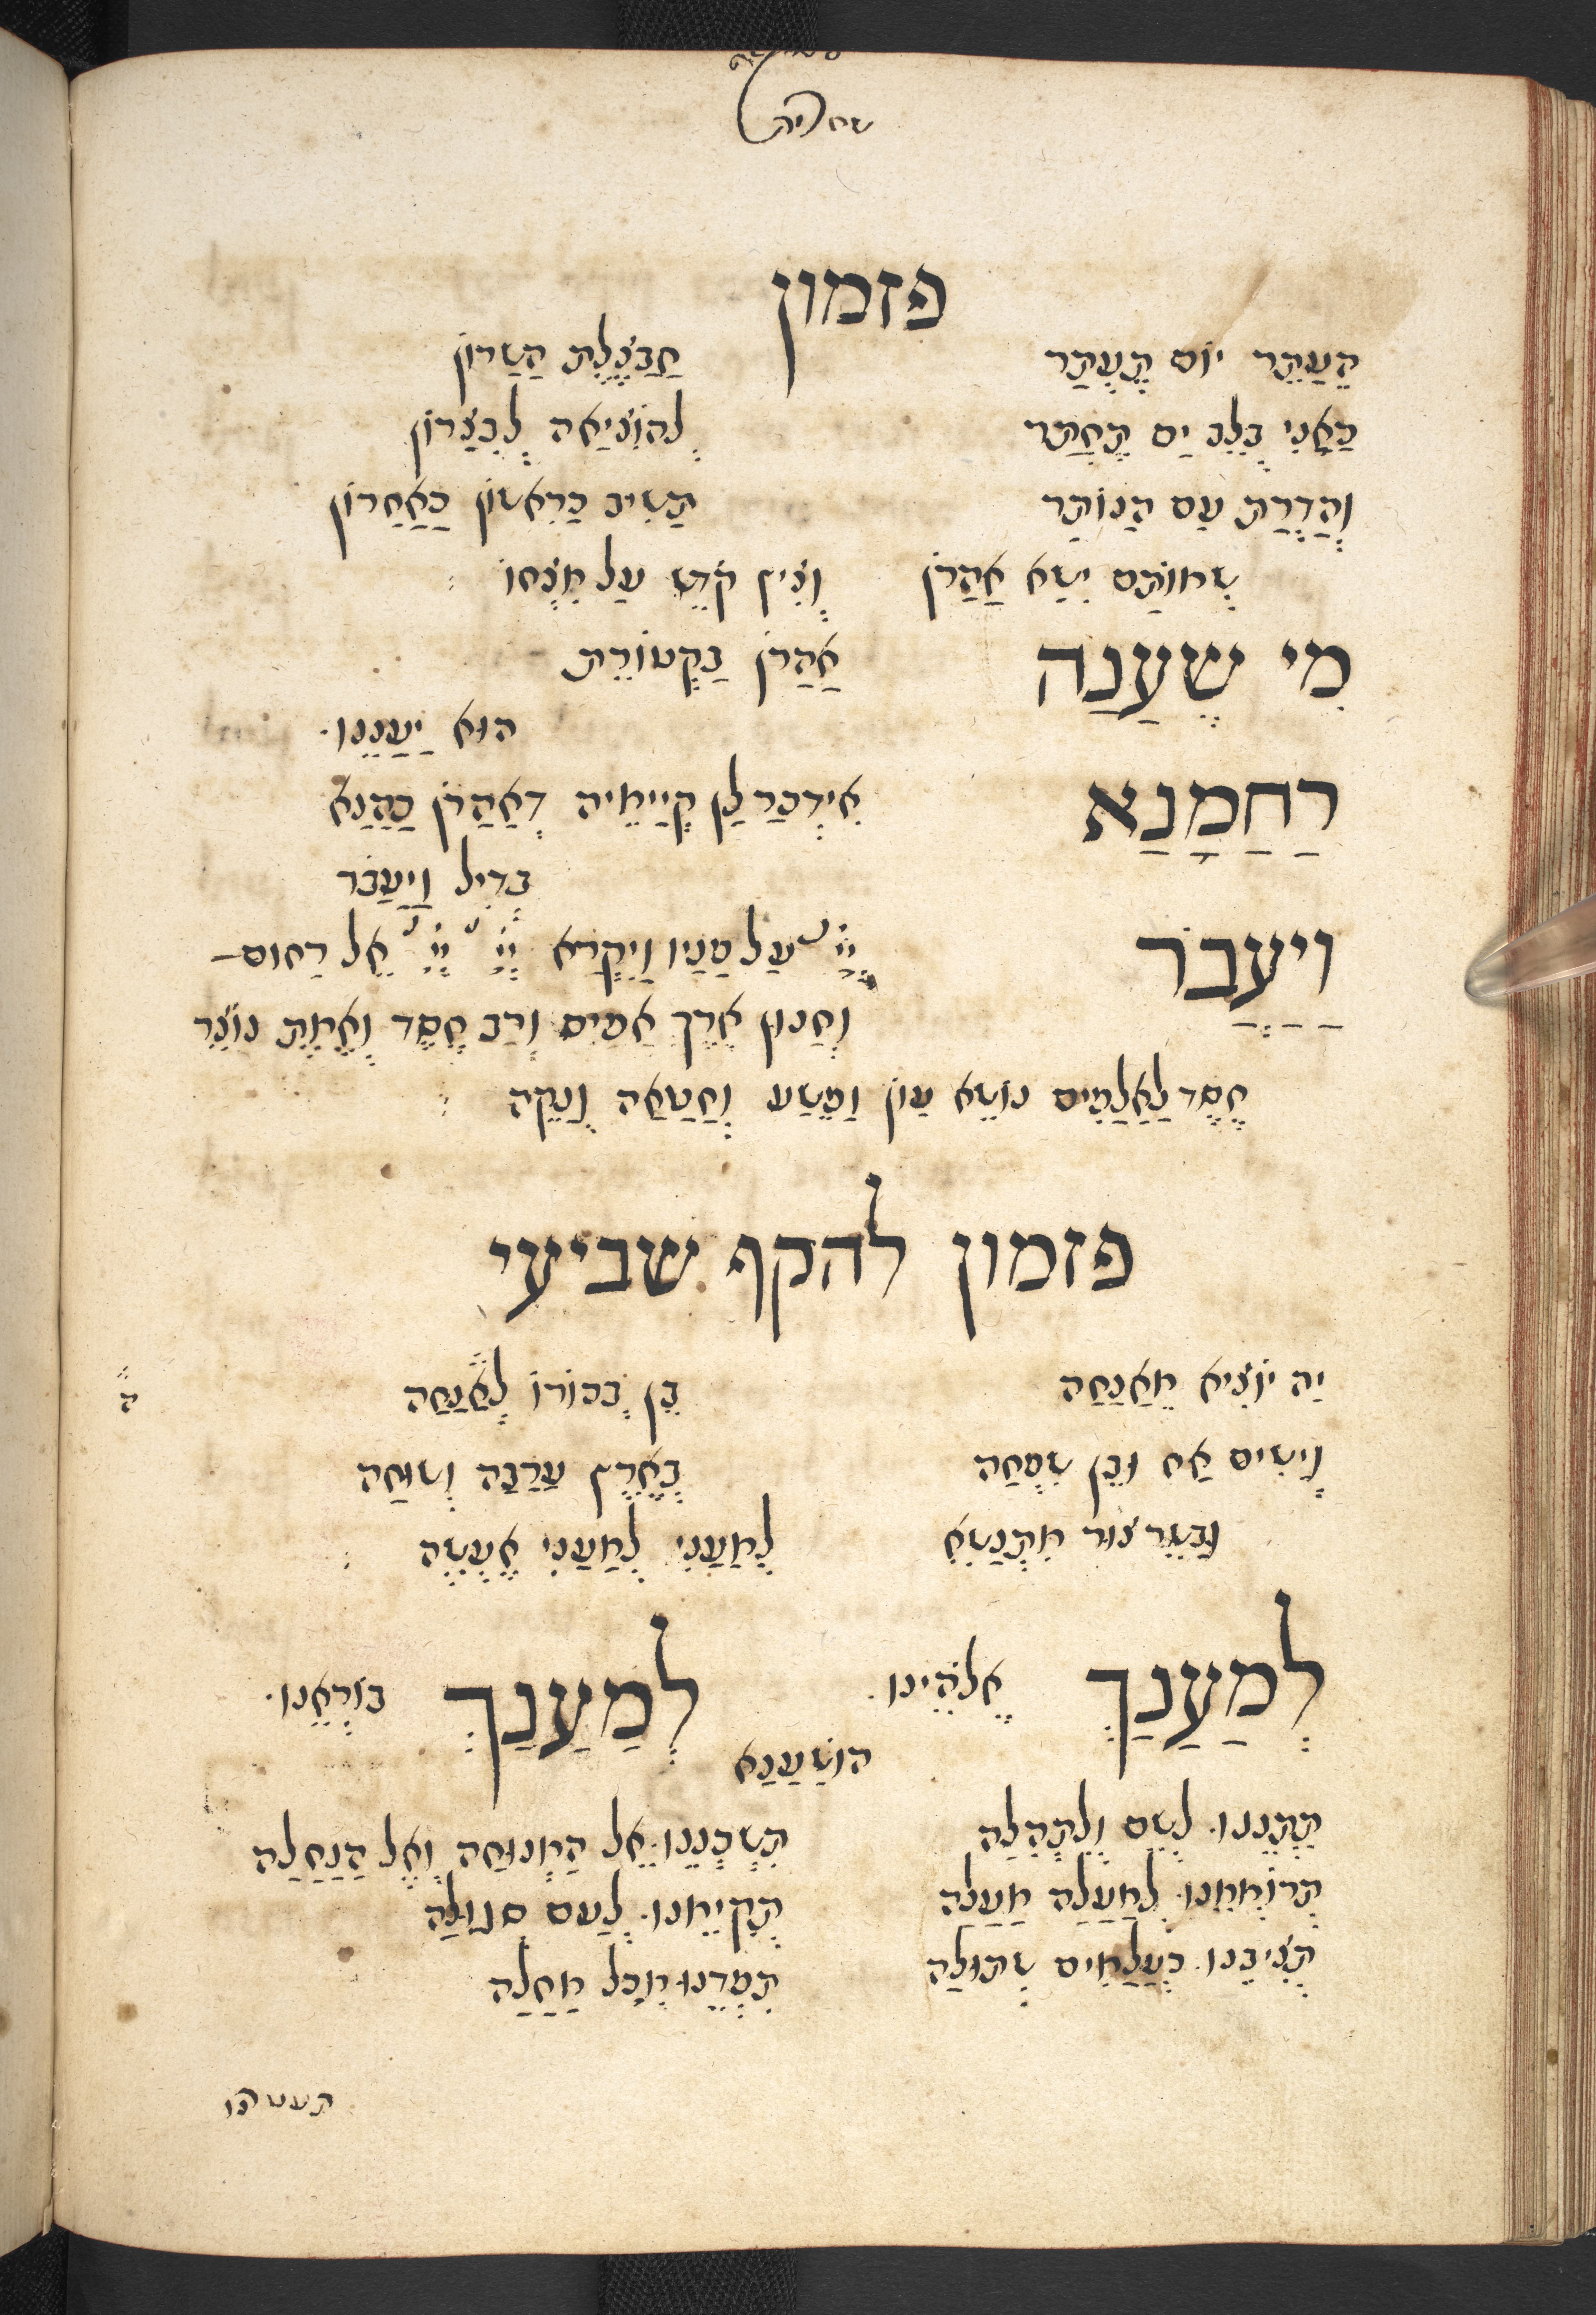 פזמון
הֵעַתֵר יוֹם תֶעְתַר חֲבַצֶלֶת הַשָרוֹן
כָאֳנִי בְלֵב יַם תֶחְתַר לְהוֹצִיאָה לְבִצָרוֹן
וְהַדְרַת עַם הַנוֹתַר תַשִיב כָרִאשוֹן כָאַחֲרוֹן
שְמוֹתָם יִשָא אַהֲרֹן וְצִיץ קֹדֶש עַל מִצְחוֹ
מִי שֶעָנָה אַהֲרֹן בַקְטוֹרֶת
הוּא יַעֲנֵנוּ
רַחֲמָנָא אִידְכַר לָן קְיָימֵיה דְאַהֲרֹן כַהֲנָא
בְדִיל וַיַעֲבֹר
וַיַעֲבֹר יְיָ עַל פָנָיו וַיִקְרָא יְיָ יְיָ אֵל רַחוּם
וְחַנוּן אֶרֶךְ אַפַיִם וְרַב חֶסֶד וֶאֱמֶת נוֹצֵר
חֶסֶד לָאֲלָפִים נוֹשֵא עָוֹן וָפֶשַע וְחַטָאָה וְנַקֵה
פזמון להקף שביעי
יָה יוֹצִיא מֵאֲנָחָה בֵן בְכוֹרוֹ לַאֲנָחָה
וְיָשִים אָח וּבֵן שִמְחָה בְאֶרֶץ עֲרָבָה וְשוּחָה
וּבַשֵר צוּר מִתְנַשֵא לְמַעֲנִי לְמַעֲנִי אֶעֱשֶה
לְמַעֲנָךְ אֱלֹהֵינוּ לְמַעֲנָךְ בוֹרְאֵנוּ
הוֹשַעֲנָא
תְתְנֵנוּ לְשֵם וְלִתְהִלָה תַשְכְנֵנוּ אֶל הַמְנוּחָה וְאֶל הַנַחֲלָה
תְרוֹמְמֵנוּ לְמַעְלָה מָעְלָה תְקָיְימֵנוּ לְעַם סְגוּלָה
תַצִיבֵנוּ כְעַל מַיִם שְתוּלָה תִפְדֵנוּ מִכָל מַחֲלָה
תעטרנו